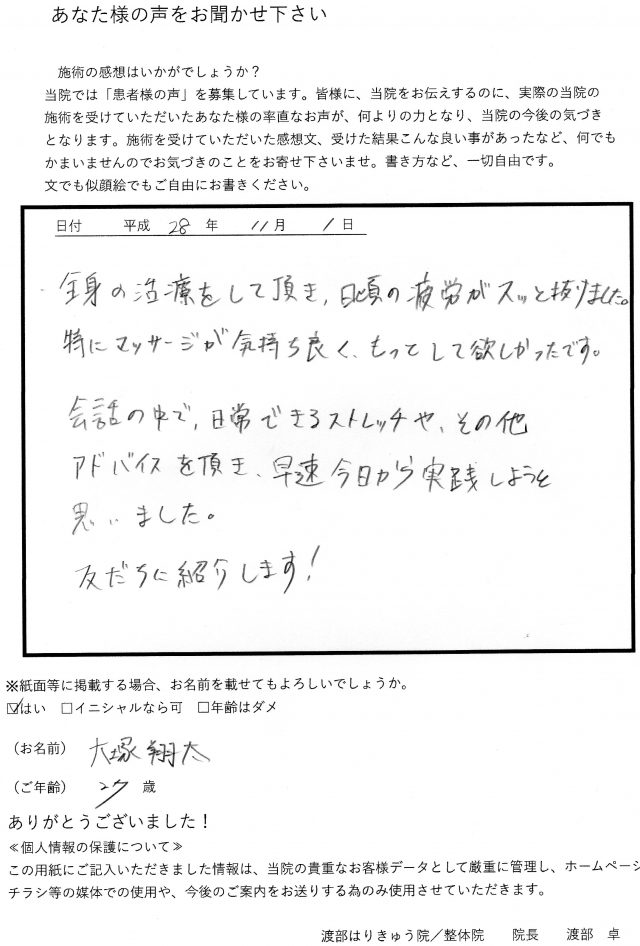 あなた様の声をお聞かせ下さい
施術の感想はいかがでしょうか？
当院では「患者様の声」を募集しています。皆様に、当院をお伝えするのに、実際の当院の
施術を受けていただいたあなた様の率直なお声が、何よりの力となり、当院の今後の気づき
となります。施術を受けていただいた感想文、受けた結果こんな良い事があったなど、何でも
かまいませんのでお気づきのことをお寄せ下さいませ。書き方など、一切自由です。
文でも似顔絵でもご自由にお書きください。
日付 平成 28 年 11 月 1 日
全身の治療をして頂き、日頃の疲労がスッと抜けました。
特にマッサージが気持ち良く、もっとして欲しかったです。
会話の中で、日常できるストレッチや、その他
アドバイスを頂き、早速今日から実践しようと
思いました。
友だちに紹介します！
※紙面等に掲載する場合、お名前を載せてもよろしいでしょうか。
☑はい □イニシャルなら可 □年齢はダメ
（お名前） 大塚翔太
（ご年齢） 27 歳
ありがとうございました！
≪個人情報の保護について≫
この用紙にご記入いただきました情報は、当院の貴重なお客様データとして厳重に管理し、ホームページ
チラシ等の媒体での使用や、今後のご案内をお送りする為のみ使用させていただきます。
渡部はりきゅう院／整体院 院長 渡部 卓